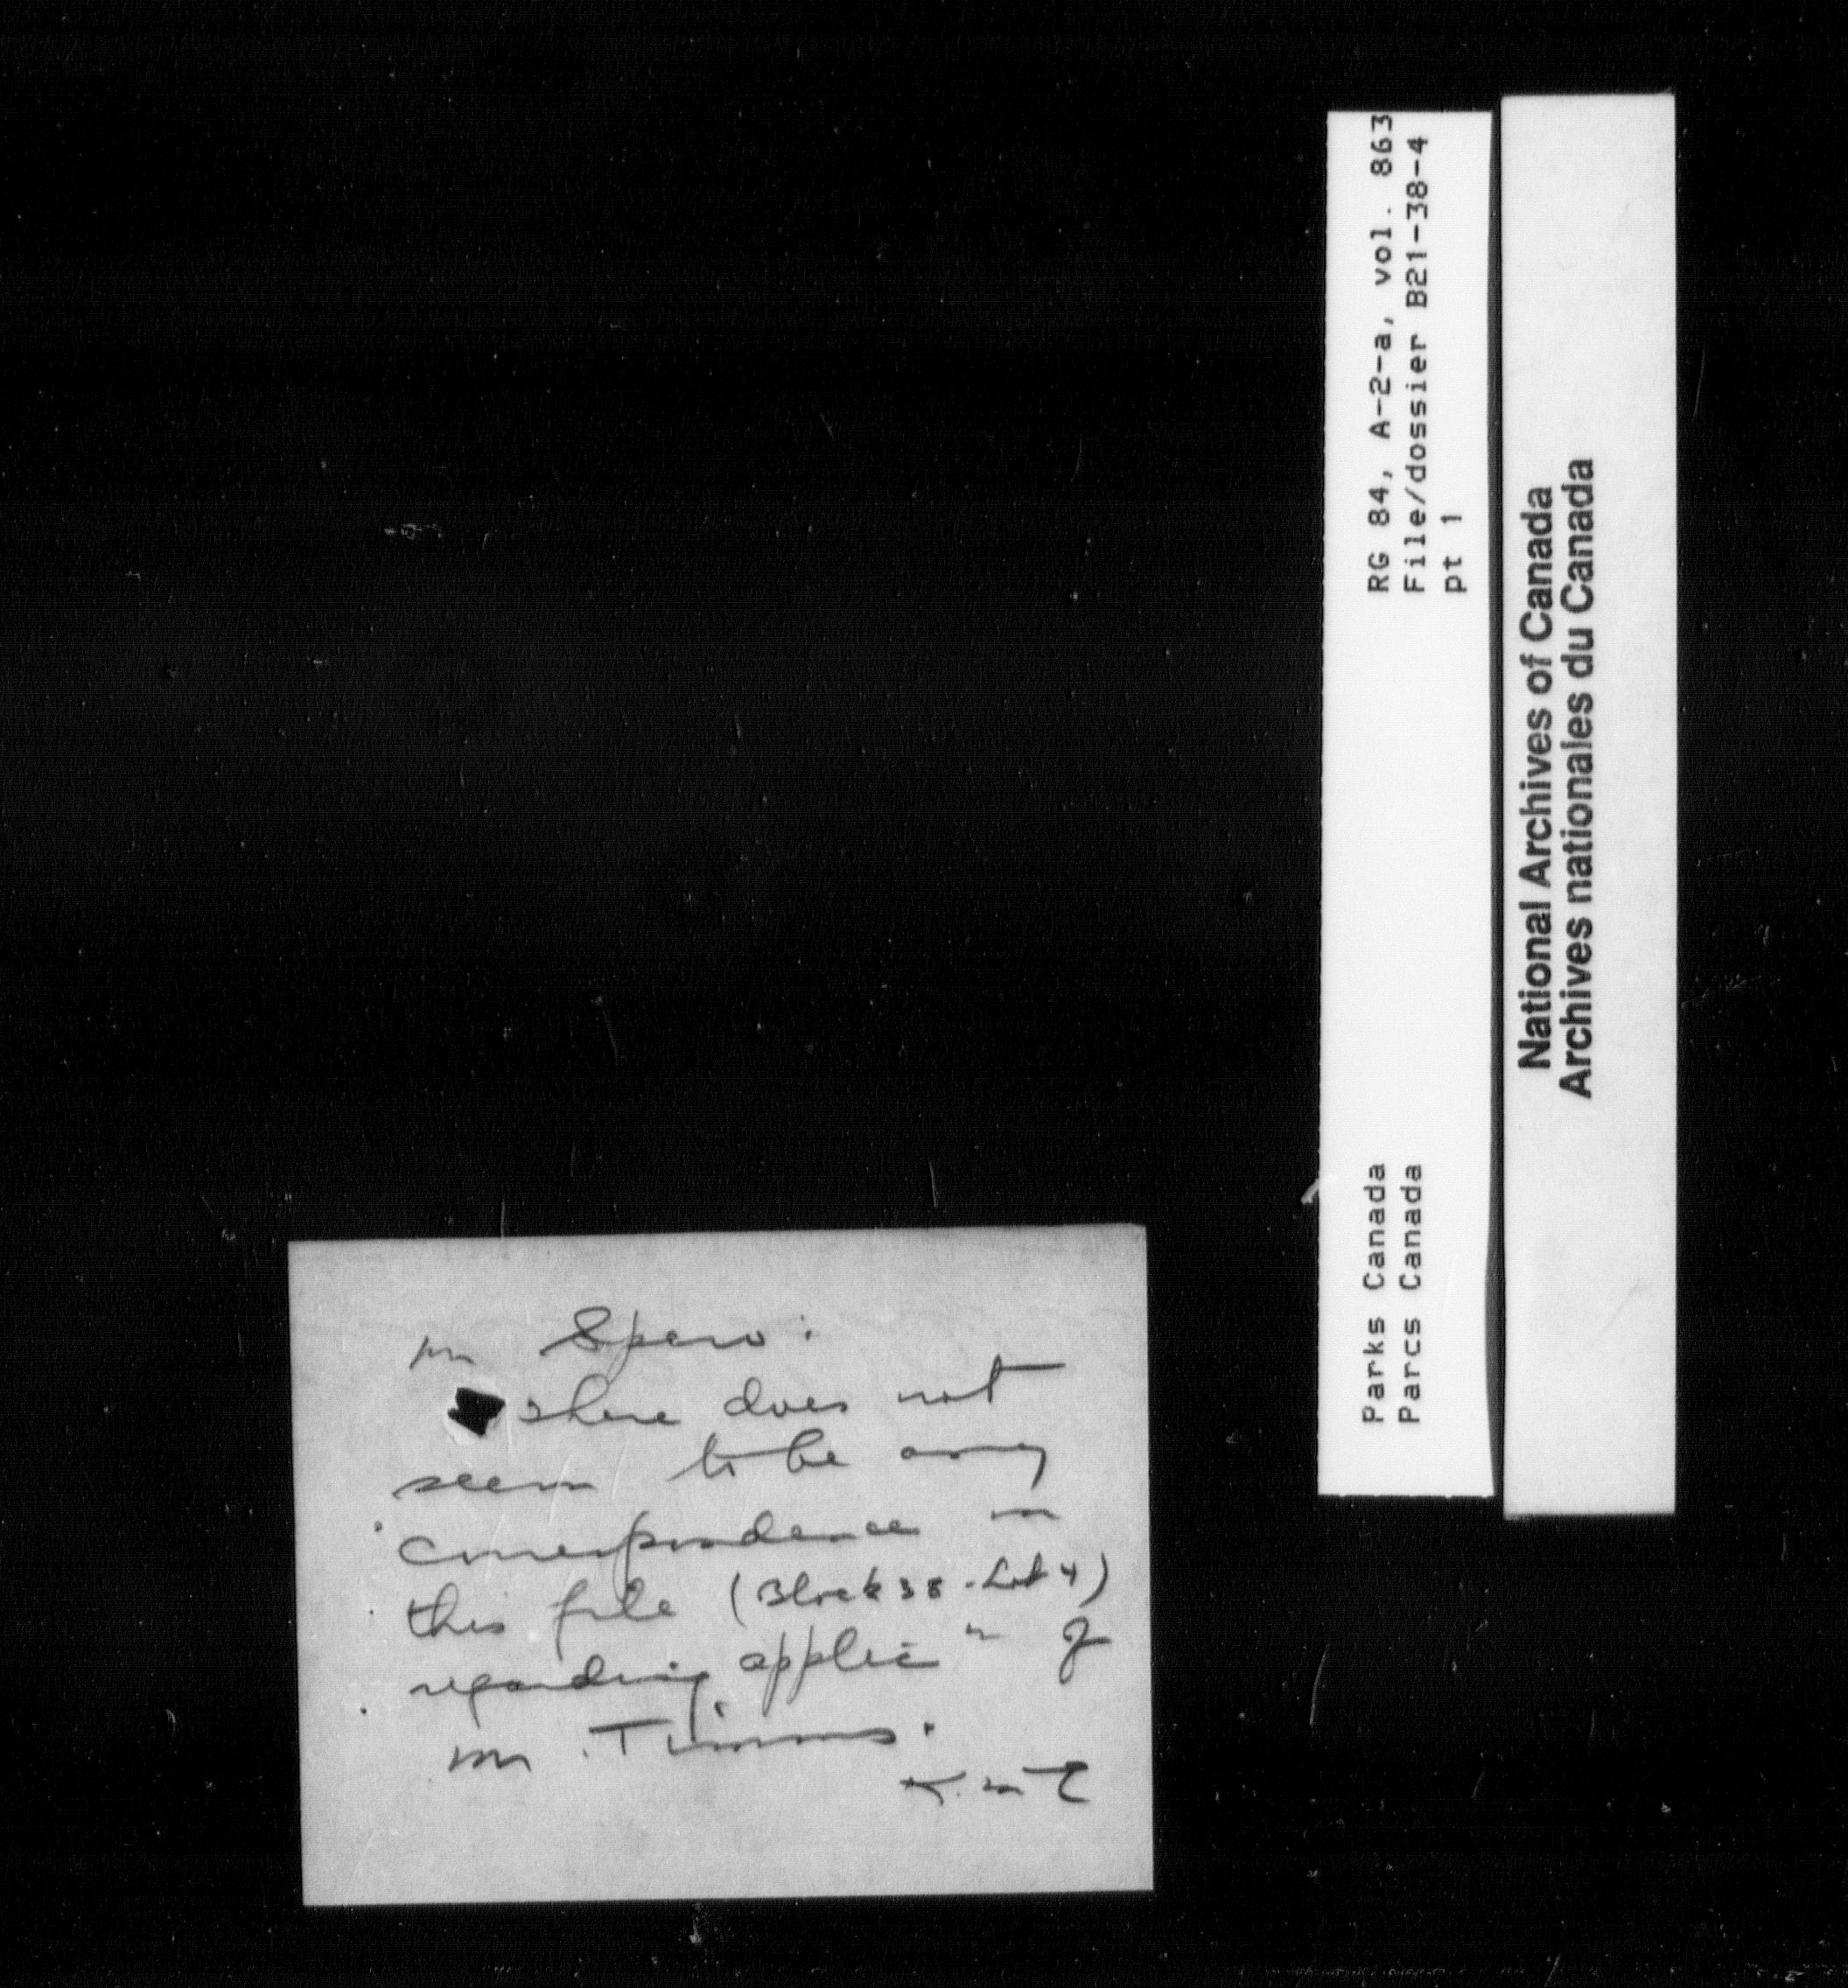 Mr Spero:
There does not
seem to be any
correspondence in
this file (Block 38 - Lot 4)
regarding applic"n of
Mr. Timms.
K.M.E
RG 84, A-2-a, vol. 863
File/dossier B21-38-4
pt 1
Parks Canada
Parcs Canada
National Archives of Canada
Archives nationales du Canada